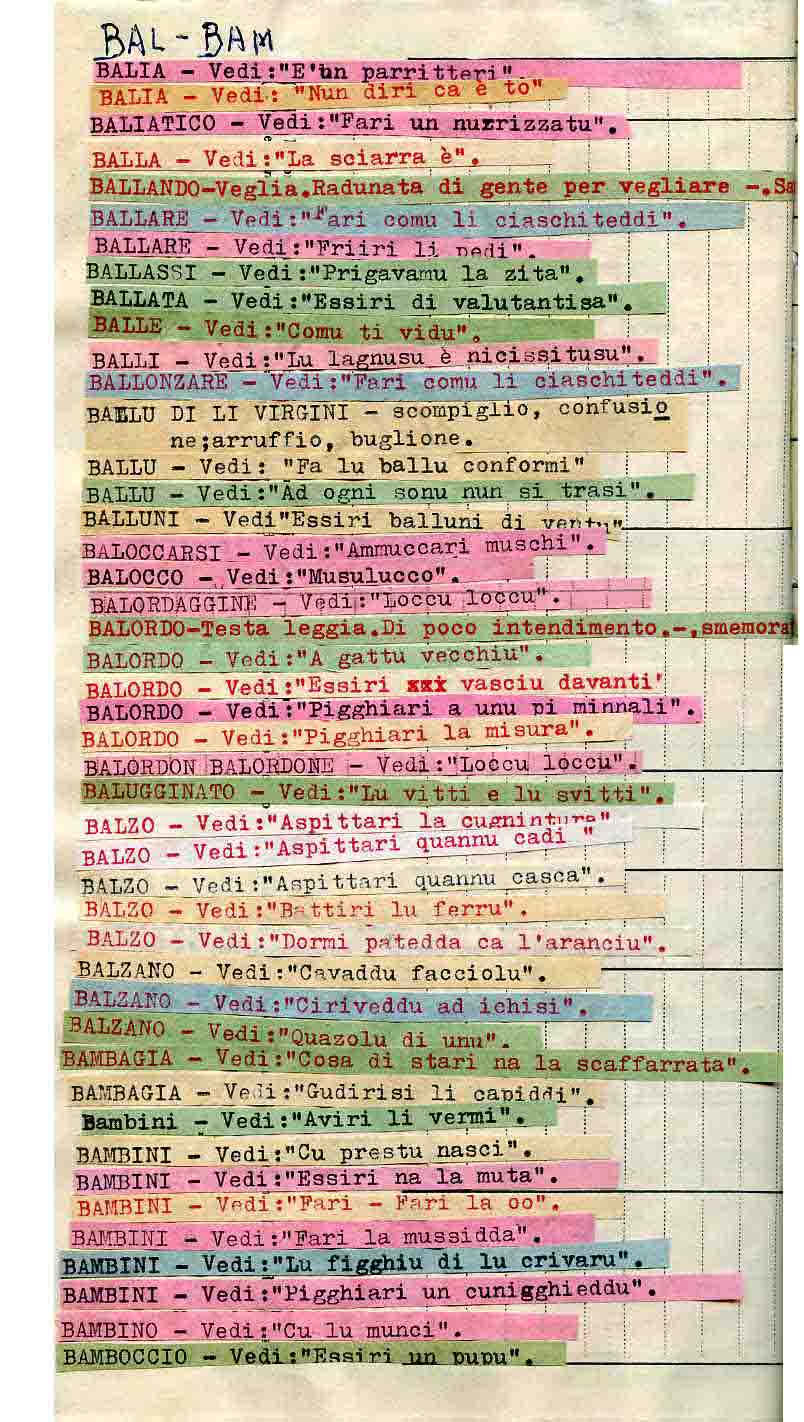 BAL - BAM
BALIA - Vedi:"E'un parritteri".
BALIA - Vedi: "Nun diri ca è to"
BALIATICO - Vedi:"Fari un nurrizzatu".
BALLA - Vedi:"La sciarra è".
BALLANDO-Veglia.Radunata di gente per vegliare -.Sa
BALLARE - Vedi:"Fari comu li ciaschiteddi".
BALLARE - Vedi:"Friiri li pedi".
BALLASSI - Vedi:"Prigavamu la zita".
BALLATA - Vedi:"Essiri di valutantisa".
BALLE - Vedi:"Comu ti vidu".
BALLI - Vedi:"Lu lagnusu è nicissitusu".
BALLONZARE - Vedi:"Fari comu li ciaschiteddi".
BALLU DI LI VIRGINI - scompiglio, confusio
ne;arruffio, buglione.
BALLU - Vedi: "Fa lu ballu conformi"
BALLU - Vedi:"Ad ogni sonu nun si trasi".
BALLUNI - Vedi"Essiri balluni di ventu"
BALOCCARSI - Vedi:"Ammuccari muschi".
BALOCCO - Vedi:"Musulucco".
BALORDAGGINE - Vedi:"Loccu loccu".
BALORDO-Testa leggia.Di poco intendimento.-,smemora
BALORDO - Vedi:"A gattu vecchiu".
BALORDO - Vedi:"Essiri xxx vasciu davanti'
BALORDO - Vedi:"Pigghiari a unu pi minnali".
BALORDO - Vedi:"Pigghiari la misura".
BALORDON BALORDONE - Vedi:"Loccu loccu".
BALUGGINATO - Vedi:"Lu vitti e lu svitti".
BALZO - Vedi:"Aspittari la cugnintura"
BALZO - Vedi:"Aspittari quannu cadi "
BALZO - Vedi:"Aspittari quannu casca".
BALZO - Vedi:"Battiri lu ferru".
BALZO - Vedi:"Dormi patedda ca l'aranciu".
BALZANO - Vedi:"Cavaddu facciolu".
BALZANO - Vedi:"Ciriveddu ad ichisi".
BALZANO - Vedi:"Quazolu di unu".
BAMBAGIA - Vedi:"Cosa di stari na la scaffarrata".
BAMBAGIA - Vedi:"Gudirisi li capiddi".
Bambini - Vedi:"Aviri li vermi".
BAMBINI - Vedi:"Cu prestu nasci".
BAMBINI - Vedi:"Essiri na la muta".
BAMBINI - Vedi:"Fari - Fari la oo".
BAMBINI - Vedi:"Fari la mussidda".
BAMBINI - Vedi:"Lu figghiu di lu crivaru".
BAMBINI - Vedi:"Pigghiari un cunigghieddu".
BAMBINO - Vedi:"Cu lu munci".
BAMBOCCIO - Vedi:"Essiri un pupu".